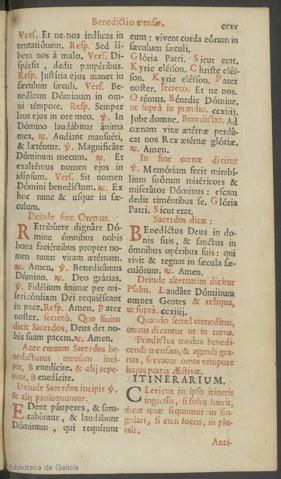 Benedictio mensæ.
ccxv
Vers. Et ne nos inducas in
tentationem. Resp. Sed li-
bera nos à malo. Vers. Di-
spérsit, dedit paupéribus.
Resp. Justitia ejus manet in
sæculum sæculi. Vers. Be-
nedicam Dóminum in om-
ni témpore. Resp. Semper
laus ejus in ore meo. ℣. In
Dómino laudábitur ánima
mea. ℟. Audiant mansuéti,
& læténtur. ℣. Magnificáte
Dóminum mecum. ℟. Et
exaltémus nomen ejus in
idípsum. Vers. Sit nomen
Dómini benedíctum. ℟. Ex
hoc nunc & usque in sæ-
culum.
Deinde sine Oremus.
REtribuere dignáre Dó-
mine ómnibus nobis
bona faciéntibus propter no-
men tuum vitam ætérnam.
℟. Amen. ℣. Benedicámus
Dómino. ℟. Deo grátias.
℣. Fidélium ánimæ per mi-
sericórdiam Dei requiéscant
in pace. Resp. Amen. Pater
noster. secreto. Quo finito
dicit Sacerdos, Deus det no-
bis suam pacem. ℟. Amen.
Ante cœnam Sacerdos be-
nedicturus mensam inci-
pit, Benedícite. & alii repe-
tunt, Benedícite.
Deinde Sacerdos incipit ℣.
& alii prosequuntur.
EDent páuperes, & satu-
rabúntur, & laudábunt
Dóminum, qui requírunt
eum: vivent corda eórum in
sæculum sæculi.
Glória Patri. Sicut erat.
Kyrie eléison. Christe eléi-
son. Kyrie eléison. Pater
noster. secreto. Et ne nos.
Orémus. Bénedic Dómine,
ut suprà in prandio. ccxiiij.
Jube domne. Benedictio. Ad
cœnam vitæ ætérnæ perdú-
cat nos Rex ætérnæ glóriæ.
℟. Amen.
In fine cœnæ dicitur
℣. Memóriam fecit mirabí-
lium suórum miséricors &
miserátor Dóminus: escam
dedit timéntibus se. Glória
Patri. Sicut erat.
Sacerdos dicit:
BEnedíctus Deus in do-
nis suis, & sanctus in
ómnibus opéribus suis: qui
vivit & regnat in sæcula sæ-
culórum. ℟. Amen.
Deinde alternatim dicitur
Psalm. Laudáte Dóminum
omnes Gentes & reliqua,
ut suprà. ccxiiij.
Quando semel comeditur,
omnia dicantur ut in cœna.
Prædictus modus benedi-
cendi mensam, & agendi gra-
tias, servatur omni tempore
hujus partis Æstivæ.
ITINERARIUM.
CLericus in ipso itineris
ingressu, si solus fuerit,
dicat quæ sequuntur in sin-
gulari, si cum sociis, in plu-
rali.
Anti-
Biblioteca de Galicia